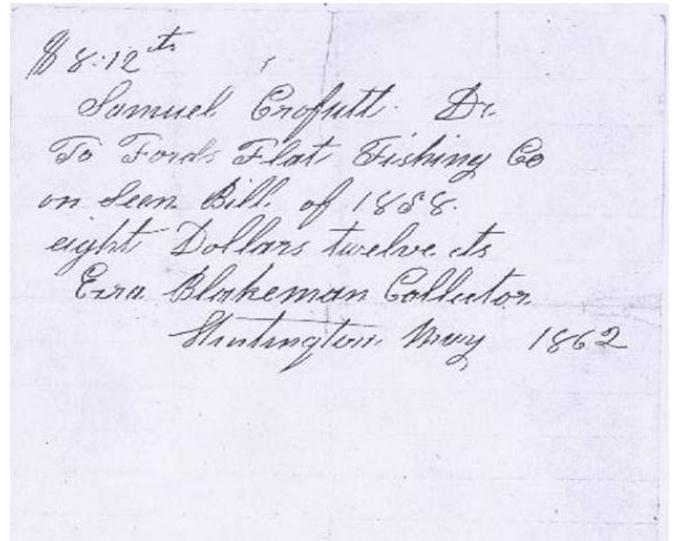 $ 8.12 cts
Samuel Crofutt. Dr.
To Fords Flat Fishing Co
on Seen Bill. of 1858.
eight Dollars twelve cts
Ezra Blakeman Collector.
Huntington. May 1862